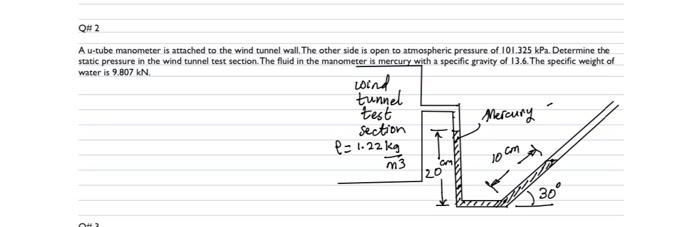 Q# 2
A u-tube manometer is attached to the wind tunnel wall. The other side is open to atmospheric pressure of 101.325 kPa. Determine the
static pressure in the wind tunnel test section. The fluid in the manometer is mercury with a specific gravity of 13.6. The specific weight of
water is 9.807 kN.
wind
tunnel
test
section
ρ= 1.22 kg
m3
Mercury
20 cm
10 cm
30°